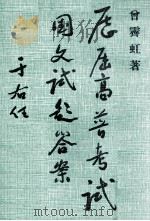 曾霽虹著
歷屆高普考試
國文試題答案
于右任